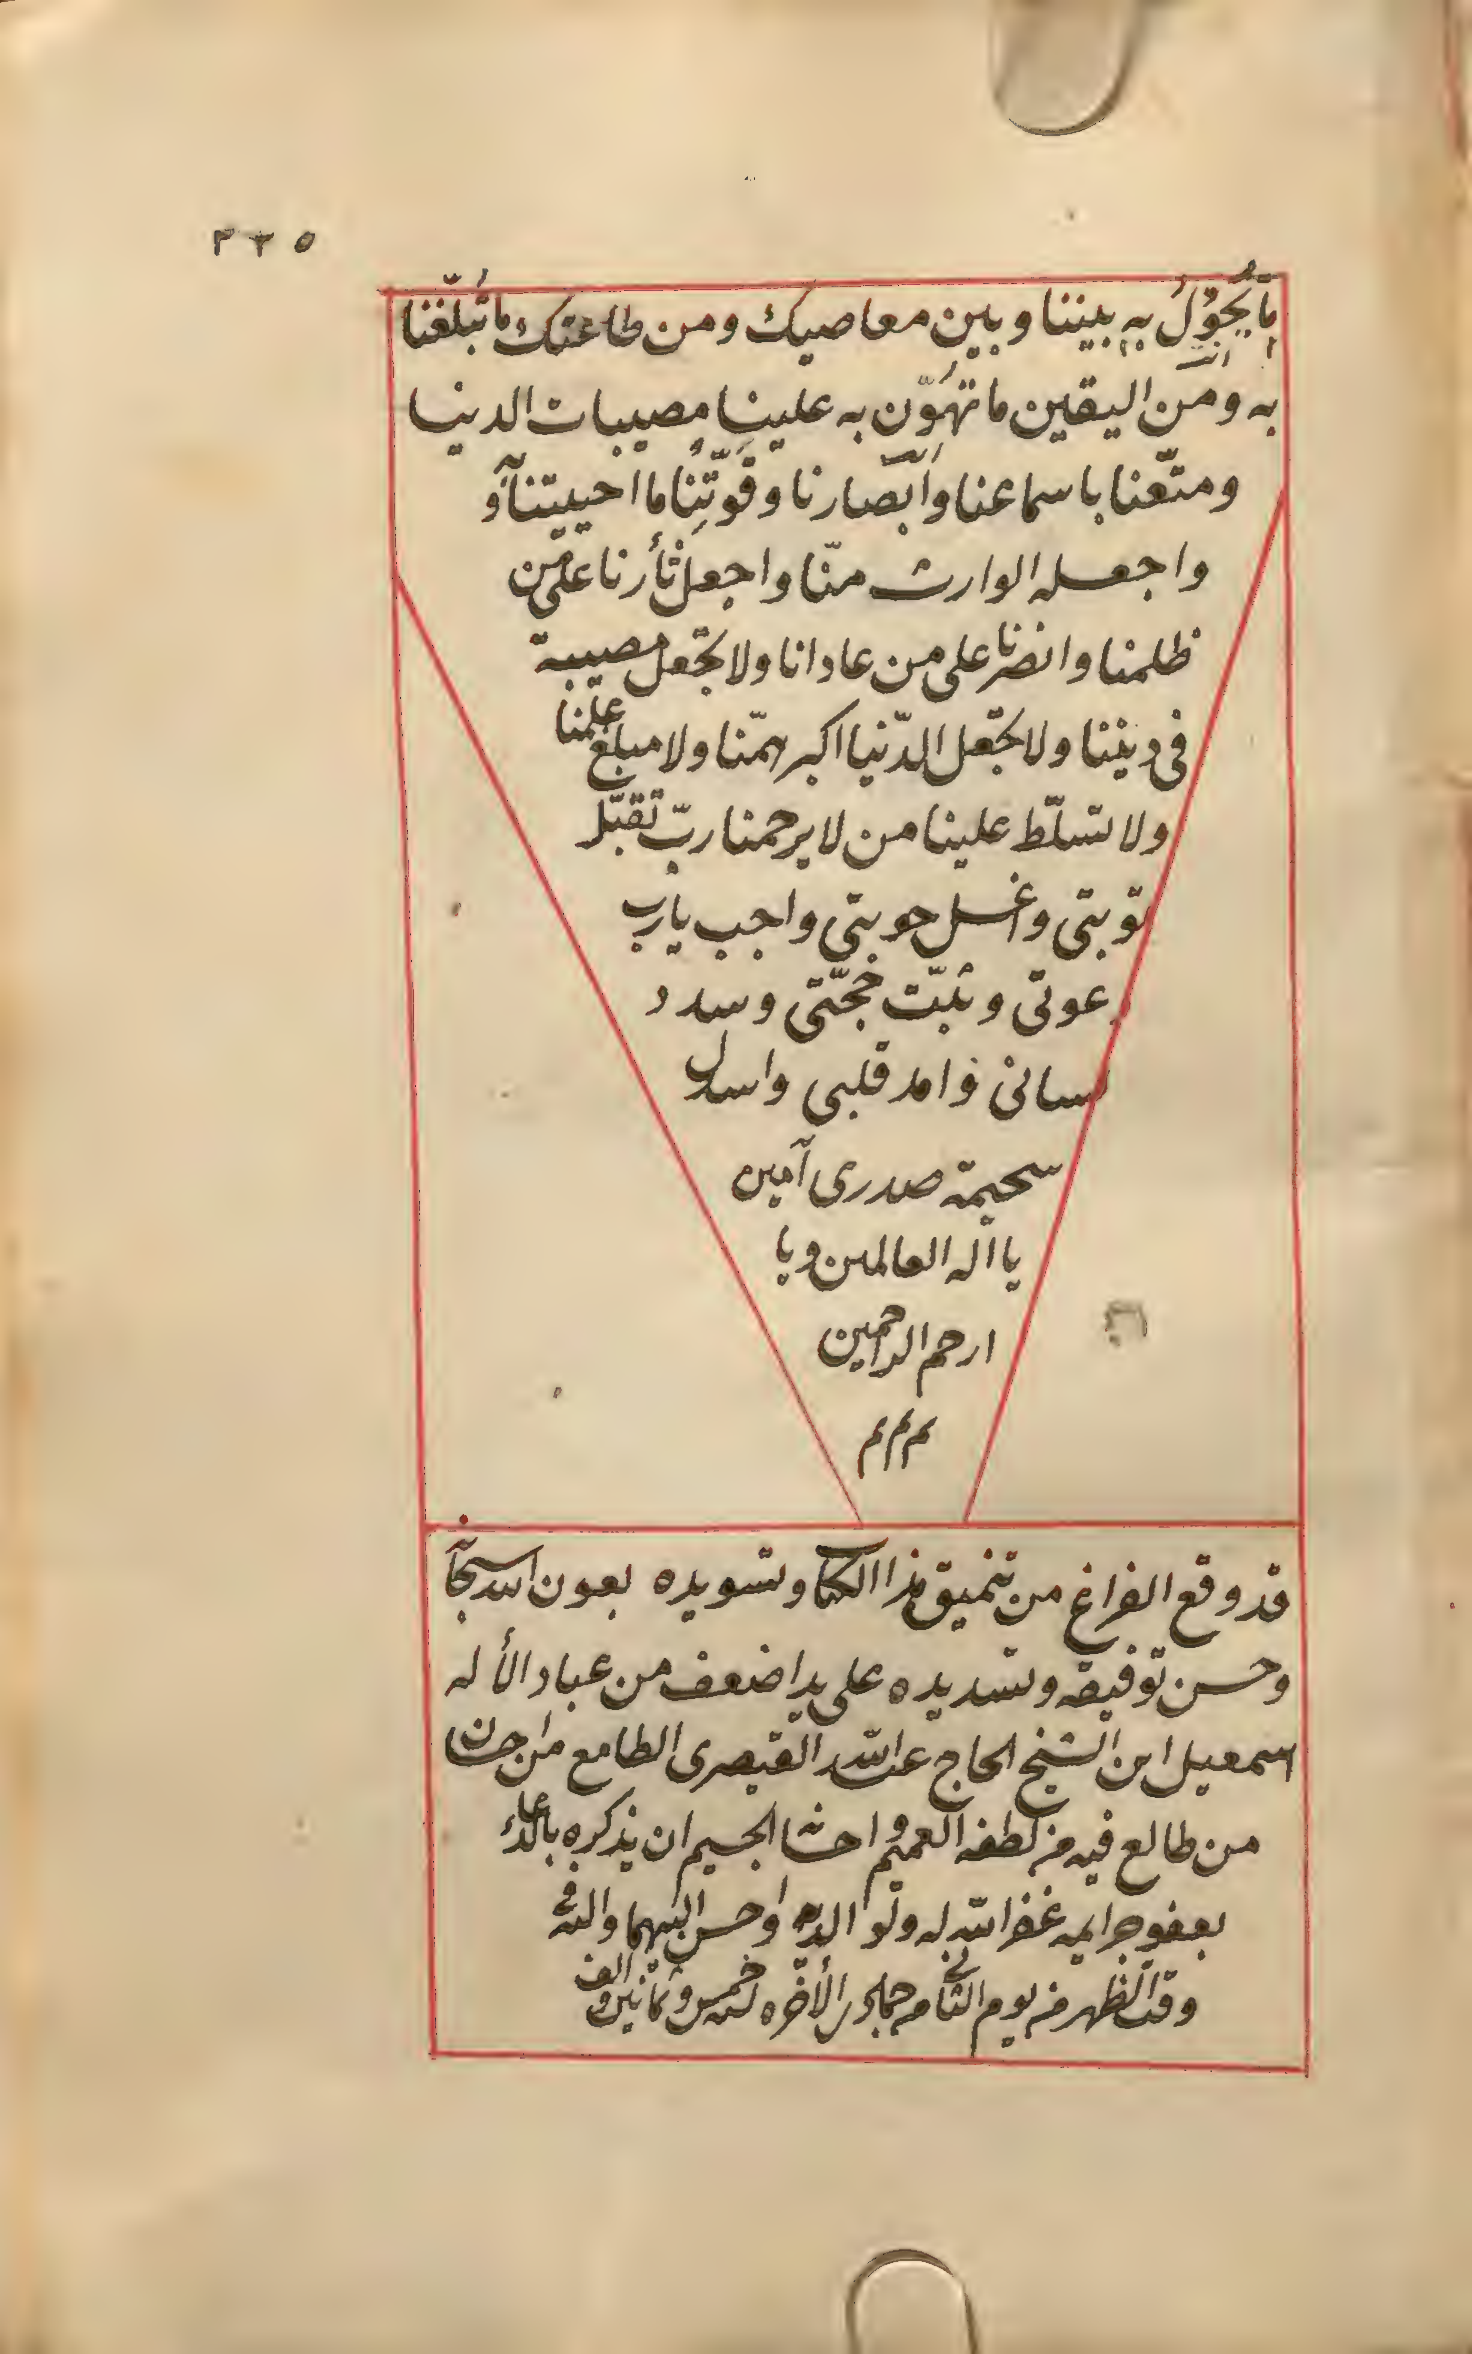 ٣٢٥
ما يَحُوْلُ به بيننا وبين معاصيك ومن طاعتك ما تُبلّغنا
انت
به ومن اليقين ما تُهَوّن به علينا مصيبات الدنيا
ومتّعنا باسماعنا وابصارنا وقوّتِنا ما احييتنا و
واجعله الوارث منّا واجعل ثأرنا على من
ظلمنا وانصرنا على من عادانا ولا تجعل مصيبة
فى ديننا ولا تجعل الدّنيا اكبر همّنا ولا مبلغ علمنا
ولا تسلّط علينا من لا يرحمنا ربّ تقبّل
توبتى واغسل حوبتى واجب يا رب
دعوتى وثبّت حجّتى وسدد
لسانى واهد قلبى واسلل
سخيمة صدرى آمين
يا اله العالمين ويا
ارحم الراحمين
م م م
قد وقع الفراغ من تنميق هذا الكتاب وتسويده بعون الله سبحانه
وحسن توفيقه وتسديده على يد اضعف من عباد الأله
اسمعيل ابن الشيخ الحاج عبد الله القيصرى الطامع من اخوان
من طالع فيه من لطفه العميم و الجسيم ان يذكره بالدعاء
بعفو جرايمه غفر الله له ولوالديه واحسن اليهما واليه فى
وقت الظهر من يوم الثانى من جمادى الأخره لسنه خمس وثمانين والف